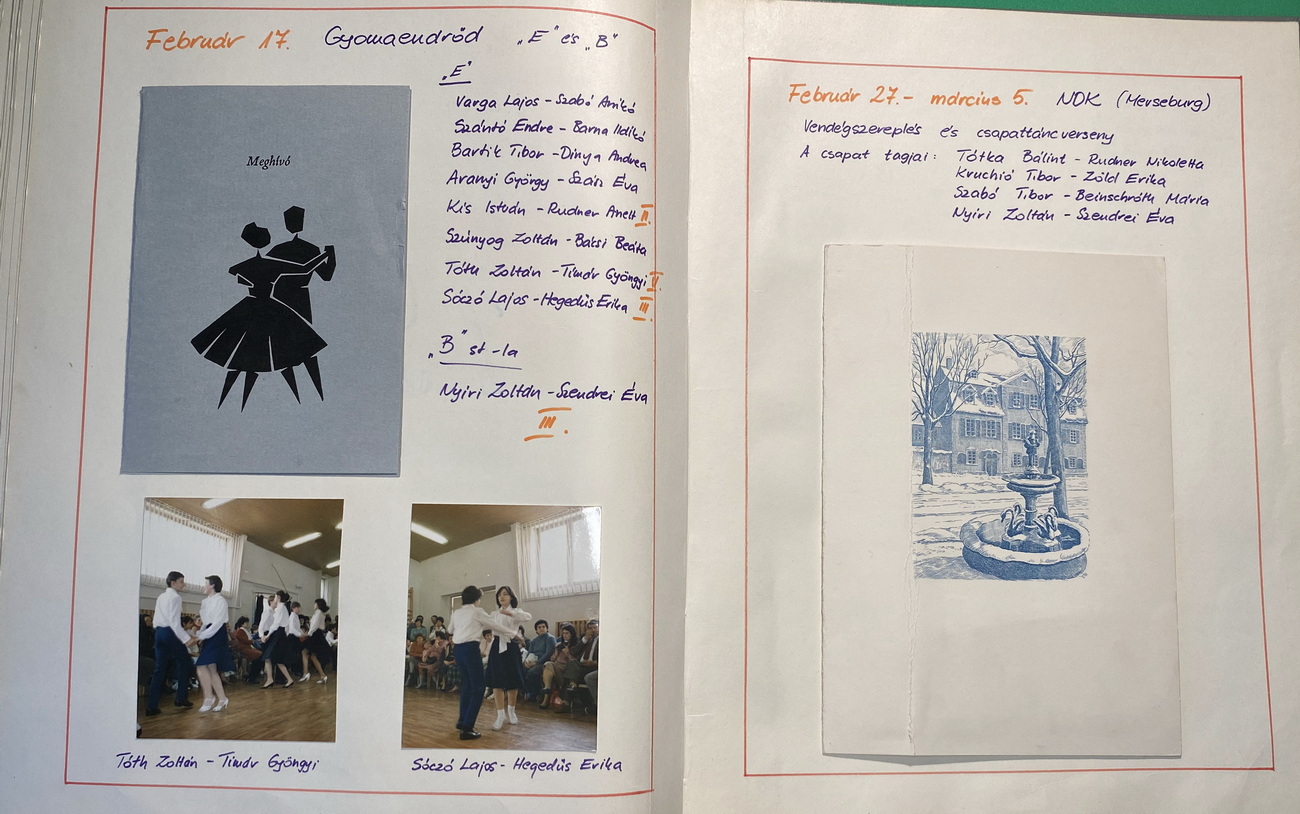 Február 17. Gyomaendrőd „E" és „B"
„E"
Meghívó
Varga Lajos - Szabó Anikó
Szántó Endre - Barna Ildikó
Bartik Tibor - Dinya Andrea
Aranyi György - Szűcs Éva
Kis István - Rudner Anett II.
Szúnyog Zoltán - Bácsi Beáta
Tóth Zoltán - Tímár Gyöngyi
Sóczó Lajos - Hegedűs Erika III.
„B" st-la
Nyíri Zoltán - Szendrei Éva
III.
Tóth Zoltán - Tímár Gyöngyi
Sóczó Lajos - Hegedűs Erika
Február 27. - március 5. NDK (Merseburg)
Vendégszereplés és csapattáncverseny
A csapat tagjai: Tótka Bálint - Rudner Nikoletta
Kruchió Tibor - Zöld Erika
Szabó Tibor - Beinschróth Mária
Nyíri Zoltán - Szendrei Éva